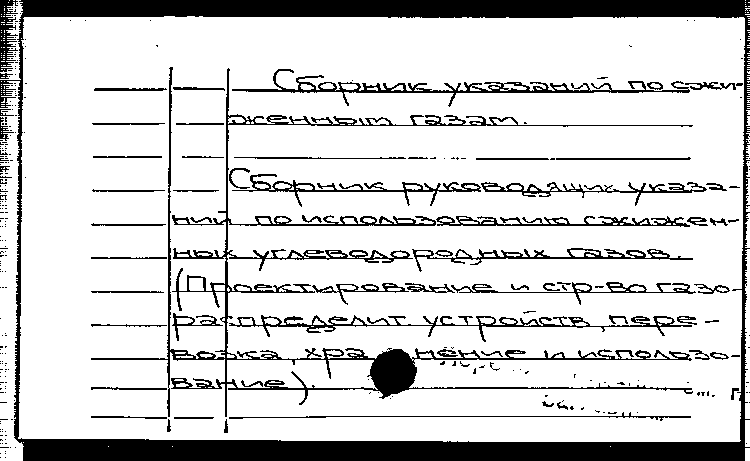 Сборник указаний по сжи-
женным газам.
Сборник руководящих указа-
ний по использованию сжижен-
ных углеводородных газов.
(Проектирование и стр-во газо-
распределит. устройств, пере-
возка, хранение и использо-
вание).